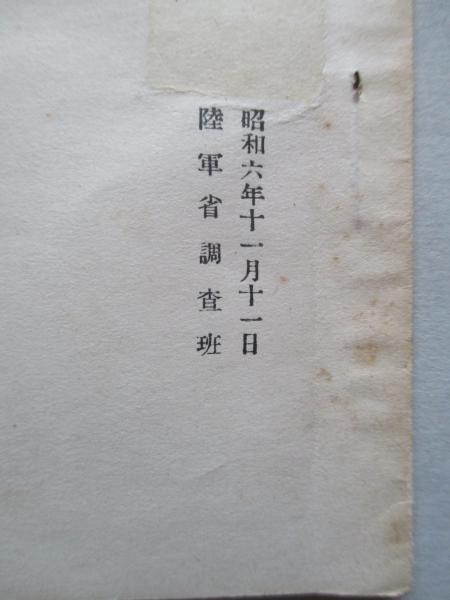 昭和六年十一月十一日
陸軍省調査班